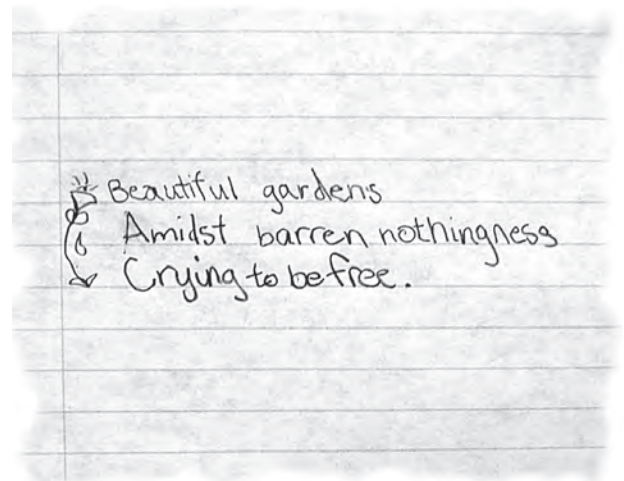 Beautiful gardens
Amidst barren nothingness
Crying to be free.